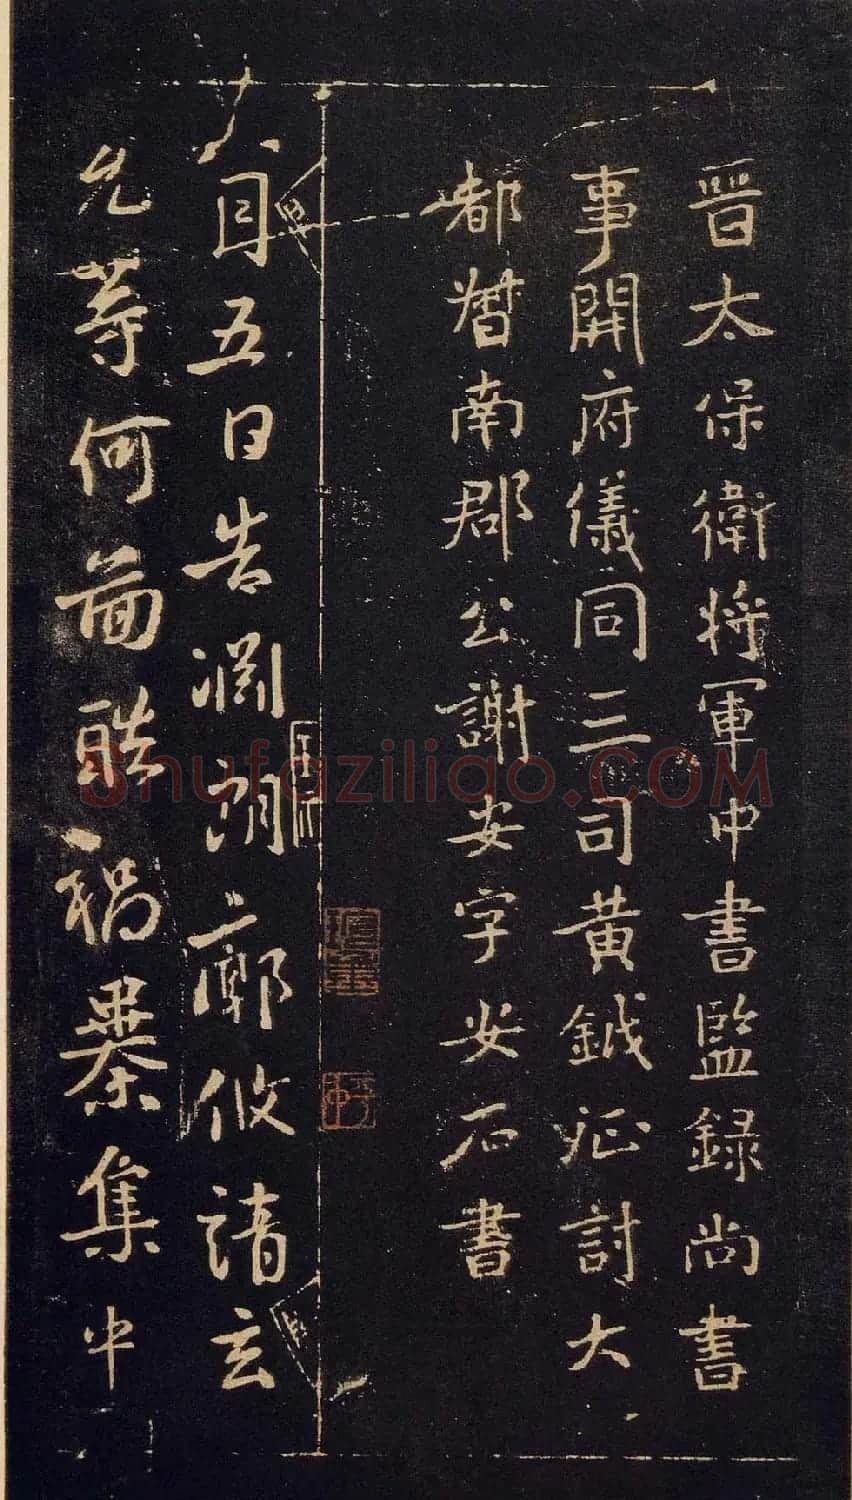 晉太保衛將軍中書監錄尚書
事開府儀同三司黃鉞征討大
都督南郡公謝安字安石書
八月五日告淵朗廓攸靖玄
允等何圖酷禍暴集中
Shufaziligo.COM